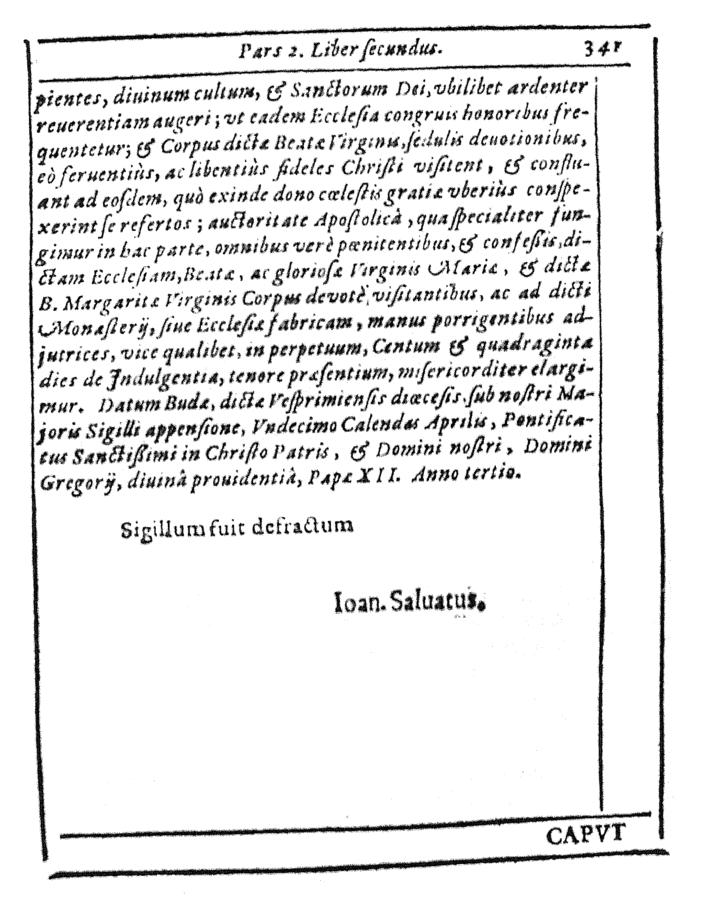 Pars 2. Liber ſecundus. 341
pientes, diuinum cultum, & Sanctorum Dei, vbilibet ardenter
reuerentiam augeri; vt eadem Eccleſia congruis honoribus fre-
quentetur; & Corpus dictæ Beatæ Virginis, ſedulis deuotionibus,
eò feruentiùs, ac libentiùs fideles Chriſti viſitent, & conflu-
ant ad eoſdem, quò exinde dono cœleſtis gratiæ vberiùs conſpe-
xerint ſe refertos; auctoritate Apoſtolicâ, qua ſpecialiter fun-
gimur in hac parte, omnibus verè pœnitentibus, & confeſsis, di-
ctam Eccleſiam, Beatæ, ac glorioſæ Virginis Mariæ, & dictæ
B. Margaritæ Virginis Corpus devotè, viſitantibus, ac ad dicti
Monaſterij, ſiue Eccleſiæ fabricam, manus porrigentibus ad-
jutrices, vice qualibet, in perpetuum, Centum & quadraginta
dies de Indulgentia, tenore præſentium, miſericorditer elargi-
mur. Datum Budæ, dictæ Veſprimienſis diœceſis, ſub noſtri Ma-
joris Sigilli appenſione, Vndecimo Calendas Aprilis, Pontifica-
tus Sanctiſsimi in Chriſto Patris, & Domini noſtri, Domini
Gregorij, diuinâ prouidentiâ, Papæ XII. Anno tertio.
Sigillum fuit defractum
Ioan. Saluatus.
CAPVT